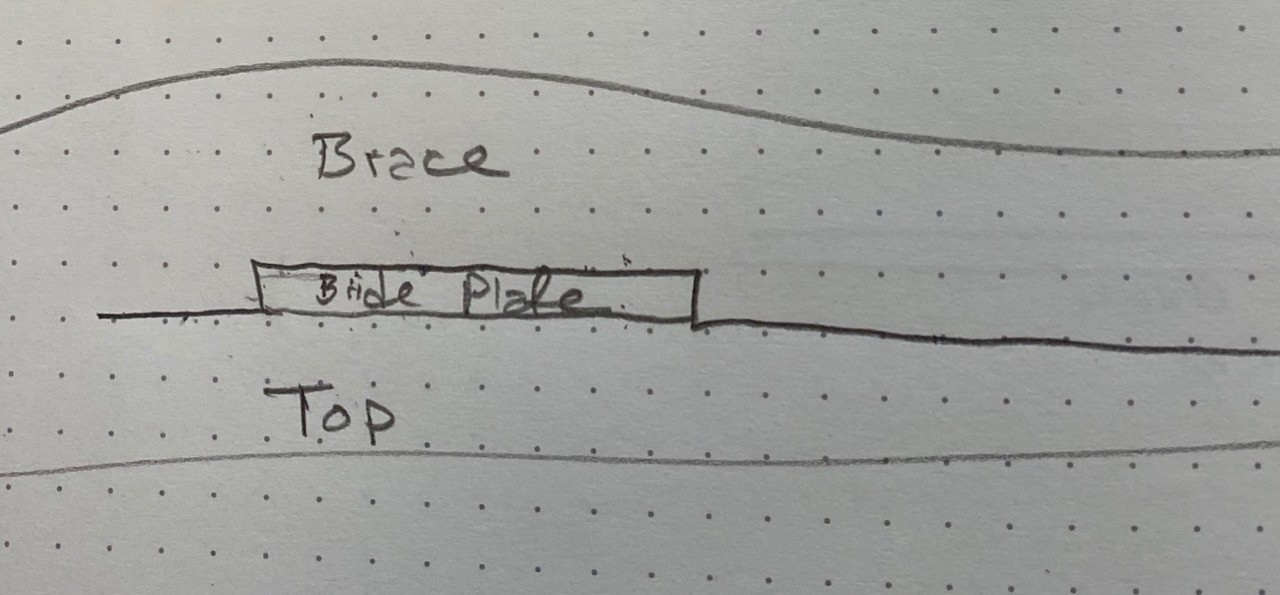 Brace
Bride Plate
Top